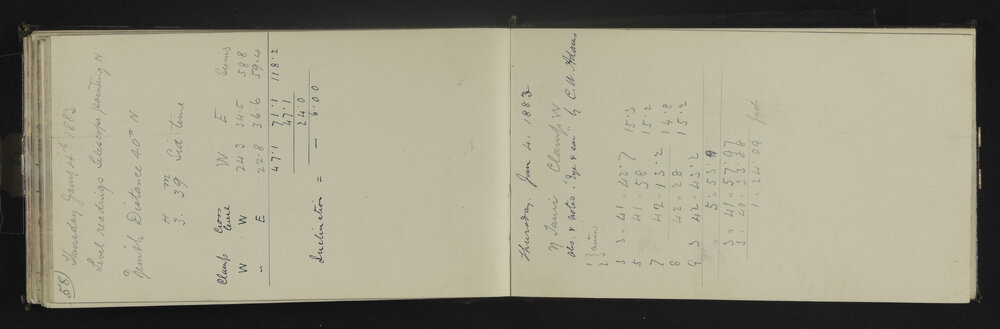 58) Thursday Jany 4th 1883
Level readings Telescope pointing N
Zenith Distance 40° N
H m
3. 39 Sid time
Clamp Cross level W E Sums
W W 24.3 34.5 58.8
" E 22.8 36.6 59.4
47.1 71.1 118.2
47.1
24.0
Inclination = - 6.00
Thursday. Jan 4. 1883
η Tauri Clamp W
Obs. & Notes Eye & ear by C. W. Adams
1 } miss
2
3 3 . 41 . 42 . 7 15.3
5 41 . 58 15.2
7 42 . 13 . 2 14.8
8 42 . 28 15.2
9 3 42 . 43 . 2
5 . 53 . 9
3 . 41 . 57 . 97
3 . 40 . 33 . 88
1 . 24 . 09 fast